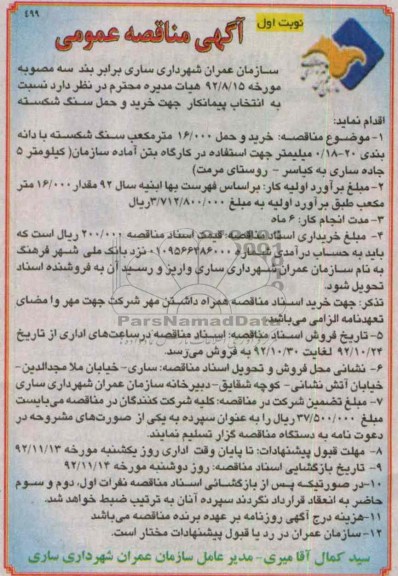 ۴۹۹
نوبت اول
آگهی مناقصه عمومی
سازمان عمران شهرداری ساری برابر بند سه مصوبه
مورخه ۹۲/۸/۱۵ هیات مدیره محترم در نظر دارد نسبت
به انتخاب پیمانکار جهت خرید و حمل سنگ شکسته
اقدام نماید:
۱- موضوع مناقصه: خرید و حمل ۱۶/۰۰۰ مترمکعب سنگ شکسته با دانه
بندی ۲۰-۰/۱۸ میلیمتر جهت استفاده در کارگاه بتن آماده سازمان( کیلومتر ۵
جاده ساری به کیاسر - روستای مرمت)
۲-مبلغ برآورد اولیه کار: براساس فهرست بها ابنیه سال ۹۲ مقدار ۱۶/۰۰۰ متر
مکعب طبق برآورد اولیه به مبلغ ۳/۷۱۲/۸۰۰/۰۰۰ریال
۳-مدت انجام کار: ۶ ماه
۴- مبلغ خریداری اسناد مناقصه: قیمت اسناد مناقصه ۲۰۰/۰۰۰ ریال است که
باید به حساب درآمدی شماره ۰۱۰۹۵۶۶۲۸۶۰۰۰ نزد بانک ملی شهر فرهنگ
به نام سازمان عمران شهرداری ساری واریز و رسید آن به فروشنده اسناد
تحویل شود.
تذکر: جهت خرید اسناد مناقصه همراه داشتن مهر شرکت جهت مهر وامضای
تعهدنامه الزامی می‌باشد.
ParsNamadData
۵- تاریخ فروش اسناد مناقصه: اسناد مناقصه در ساعت‌های اداری از تاریخ
۹۲/۱۰/۲۴ لغایت ۹۲/۱۰/۳۰ به فروش می‌رسد.
۶- نشانی محل فروش و تحویل اسناد مناقصه: ساری-خیابان ملا مجدالدین-
خیابان آتش نشانی- کوچه شقایق-دبیرخانه سازمان عمران شهرداری ساری
۷- مبلغ تضمین شرکت در مناقصه: کلیه شرکت کنندگان در مناقصه می‌بایست
مبلغ ۳۷/۵۰۰/۰۰۰ ریال را به عنوان سپرده به یکی از صورت‌های مشروحه در
دعوت نامه به دستگاه مناقصه گزار تسلیم نمایند.
۸- مهلت قبول پیشنهادات: تا پایان وقت اداری روز یکشنبه مورخه ۹۲/۱۱/۱۳
۹- تاریخ بازگشایی اسناد مناقصه: روز دوشنبه مورخه ۹۲/۱۱/۱۴
۱۰-در صورتیکه پس از بازگشائی اسناد مناقصه نفرات اول، دوم و سوم
حاضر به انعقاد قرارداد نگردند سپرده آنان به ترتیب ضبط خواهد شد.
۱۱-هزینه درج آگهی روزنامه بر عهده برنده مناقصه می‌باشد
۱۲-سازمان عمران در رد یا قبول پیشنهادات مختار است.
سید کمال آقا میری- مدیر عامل سازمان عمران شهرداری ساری